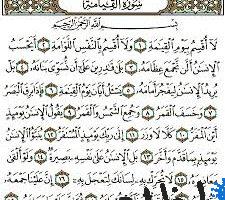 سُورَةُ القِيَامَةِ
بِسْمِ اللَّهِ الرَّحْمَٰنِ الرَّحِيمِ
لَا أُقْسِمُ بِيَوْمِ الْقِيَٰمَةِ ١ وَلَا أُقْسِمُ بِالنَّفْسِ اللَّوَّامَةِ ٢ أَيَحْسَبُ
الْإِنسَٰنُ أَلَّن نَّجْمَعَ عِظَامَهُ ٣ بَلَىٰ قَٰدِرِينَ عَلَىٰ أَن نُّسَوِّيَ بَنَانَهُ ٤ بَلْ
يُرِيدُ الْإِنسَٰنُ لِيَفْجُرَ أَمَامَهُ ٥ يَسْـَٔلُ أَيَّانَ يَوْمُ الْقِيَٰمَةِ ٦ فَإِذَا بَرِقَ الْبَصَرُ
٧ وَخَسَفَ الْقَمَرُ ٨ وَجُمِعَ الشَّمْسُ وَالْقَمَرُ ٩ يَقُولُ الْإِنسَٰنُ يَوْمَئِذٍ
أَيْنَ الْمَفَرُّ ١٠ كَلَّا لَا وَزَرَ ١١ إِلَىٰ رَبِّكَ يَوْمَئِذٍ الْمُسْتَقَرُّ ١٢ يُنَبَّؤُا الْإِنسَٰنُ
يَوْمَئِذٍ بِمَا قَدَّمَ وَأَخَّرَ ١٣ بَلِ الْإِنسَٰنُ عَلَىٰ نَفْسِهِ بَصِيرَةٌ ١٤ وَلَوْ أَلْقَىٰ
مَعَاذِيرَهُ ١٥ لَا تُحَرِّكْ بِهِ لِسَانَكَ لِتَعْجَلَ بِهِ ١٦ إِنَّ عَلَيْنَا جَمْعَهُ